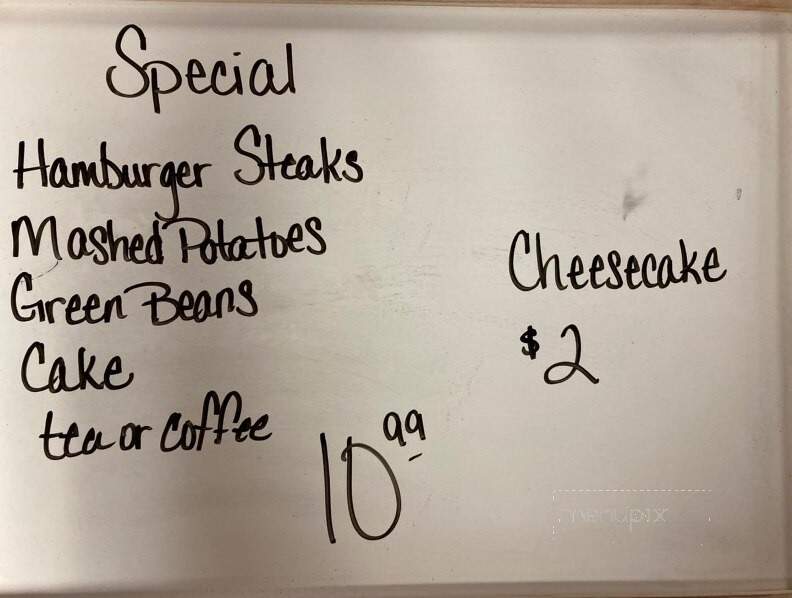 Special
Hamburger Steaks
Mashed Potatoes
Green Beans
Cake
tea or coffee
10.99
Cheesecake
$2
menupix